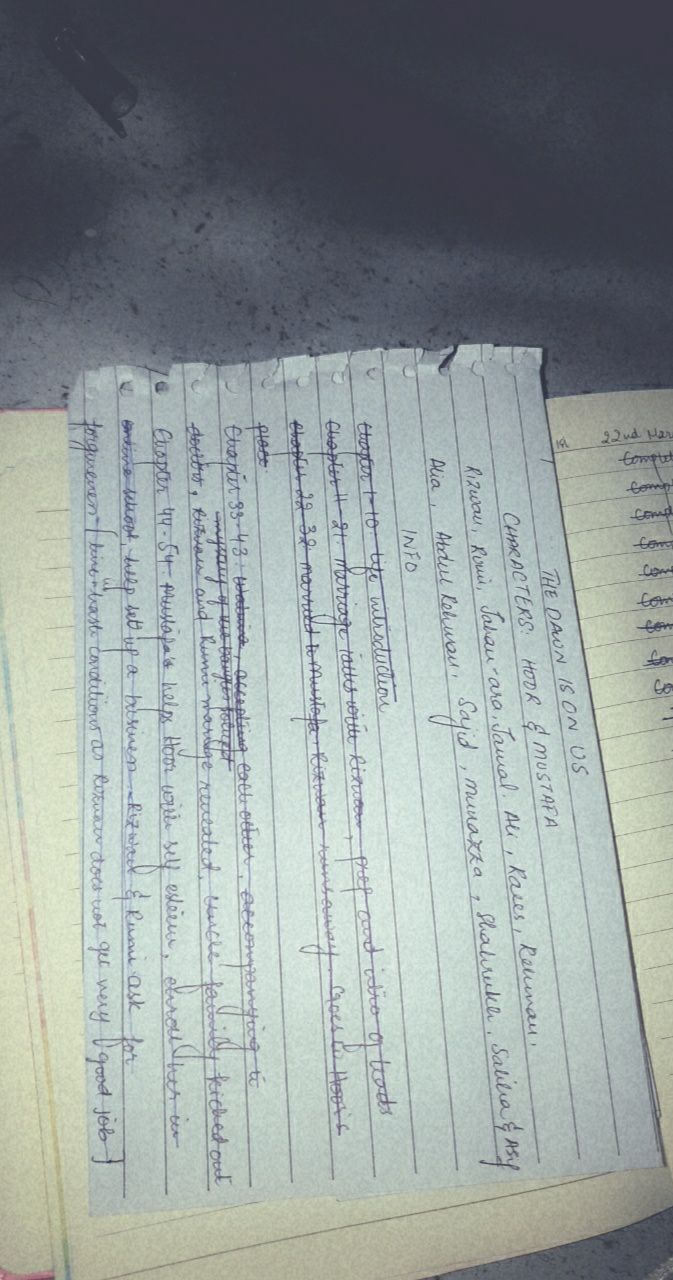 THE DAWN IS ON US
CHARACTERS: HOOR & MUSTAFA
Rizwan, Rumi, Jahan-ara, Jamal, Ali, Raees, Rehman,
Alia, Abdul Rehman, Sajid, Munazza, Shahrukh, Saliha & Asif
INFO
Chapter 1-10 life introduction
Chapter 11-21. Marriage talks with Rizwan, prep and intro of leads
Chapter 22-32 married to Mustafa. Rizwan runs away. Goes to Hoor's
place
Chapter 33-43. accepting each other, accompanying to
mystery of
doctor, Rizwan and Rumi marriage revealed, uncle family kicked out
Chapter 44-54. Mustafa helps Hoor with self esteem, enroll her in
online school, help set up a business. Rizwan & Rumi ask for
forgiveness (live in bad conditions as Rizwan does not get very good job)
22nd Mar
Comple
Comp
Comp
Com
Com
Com
Com
Co
Co